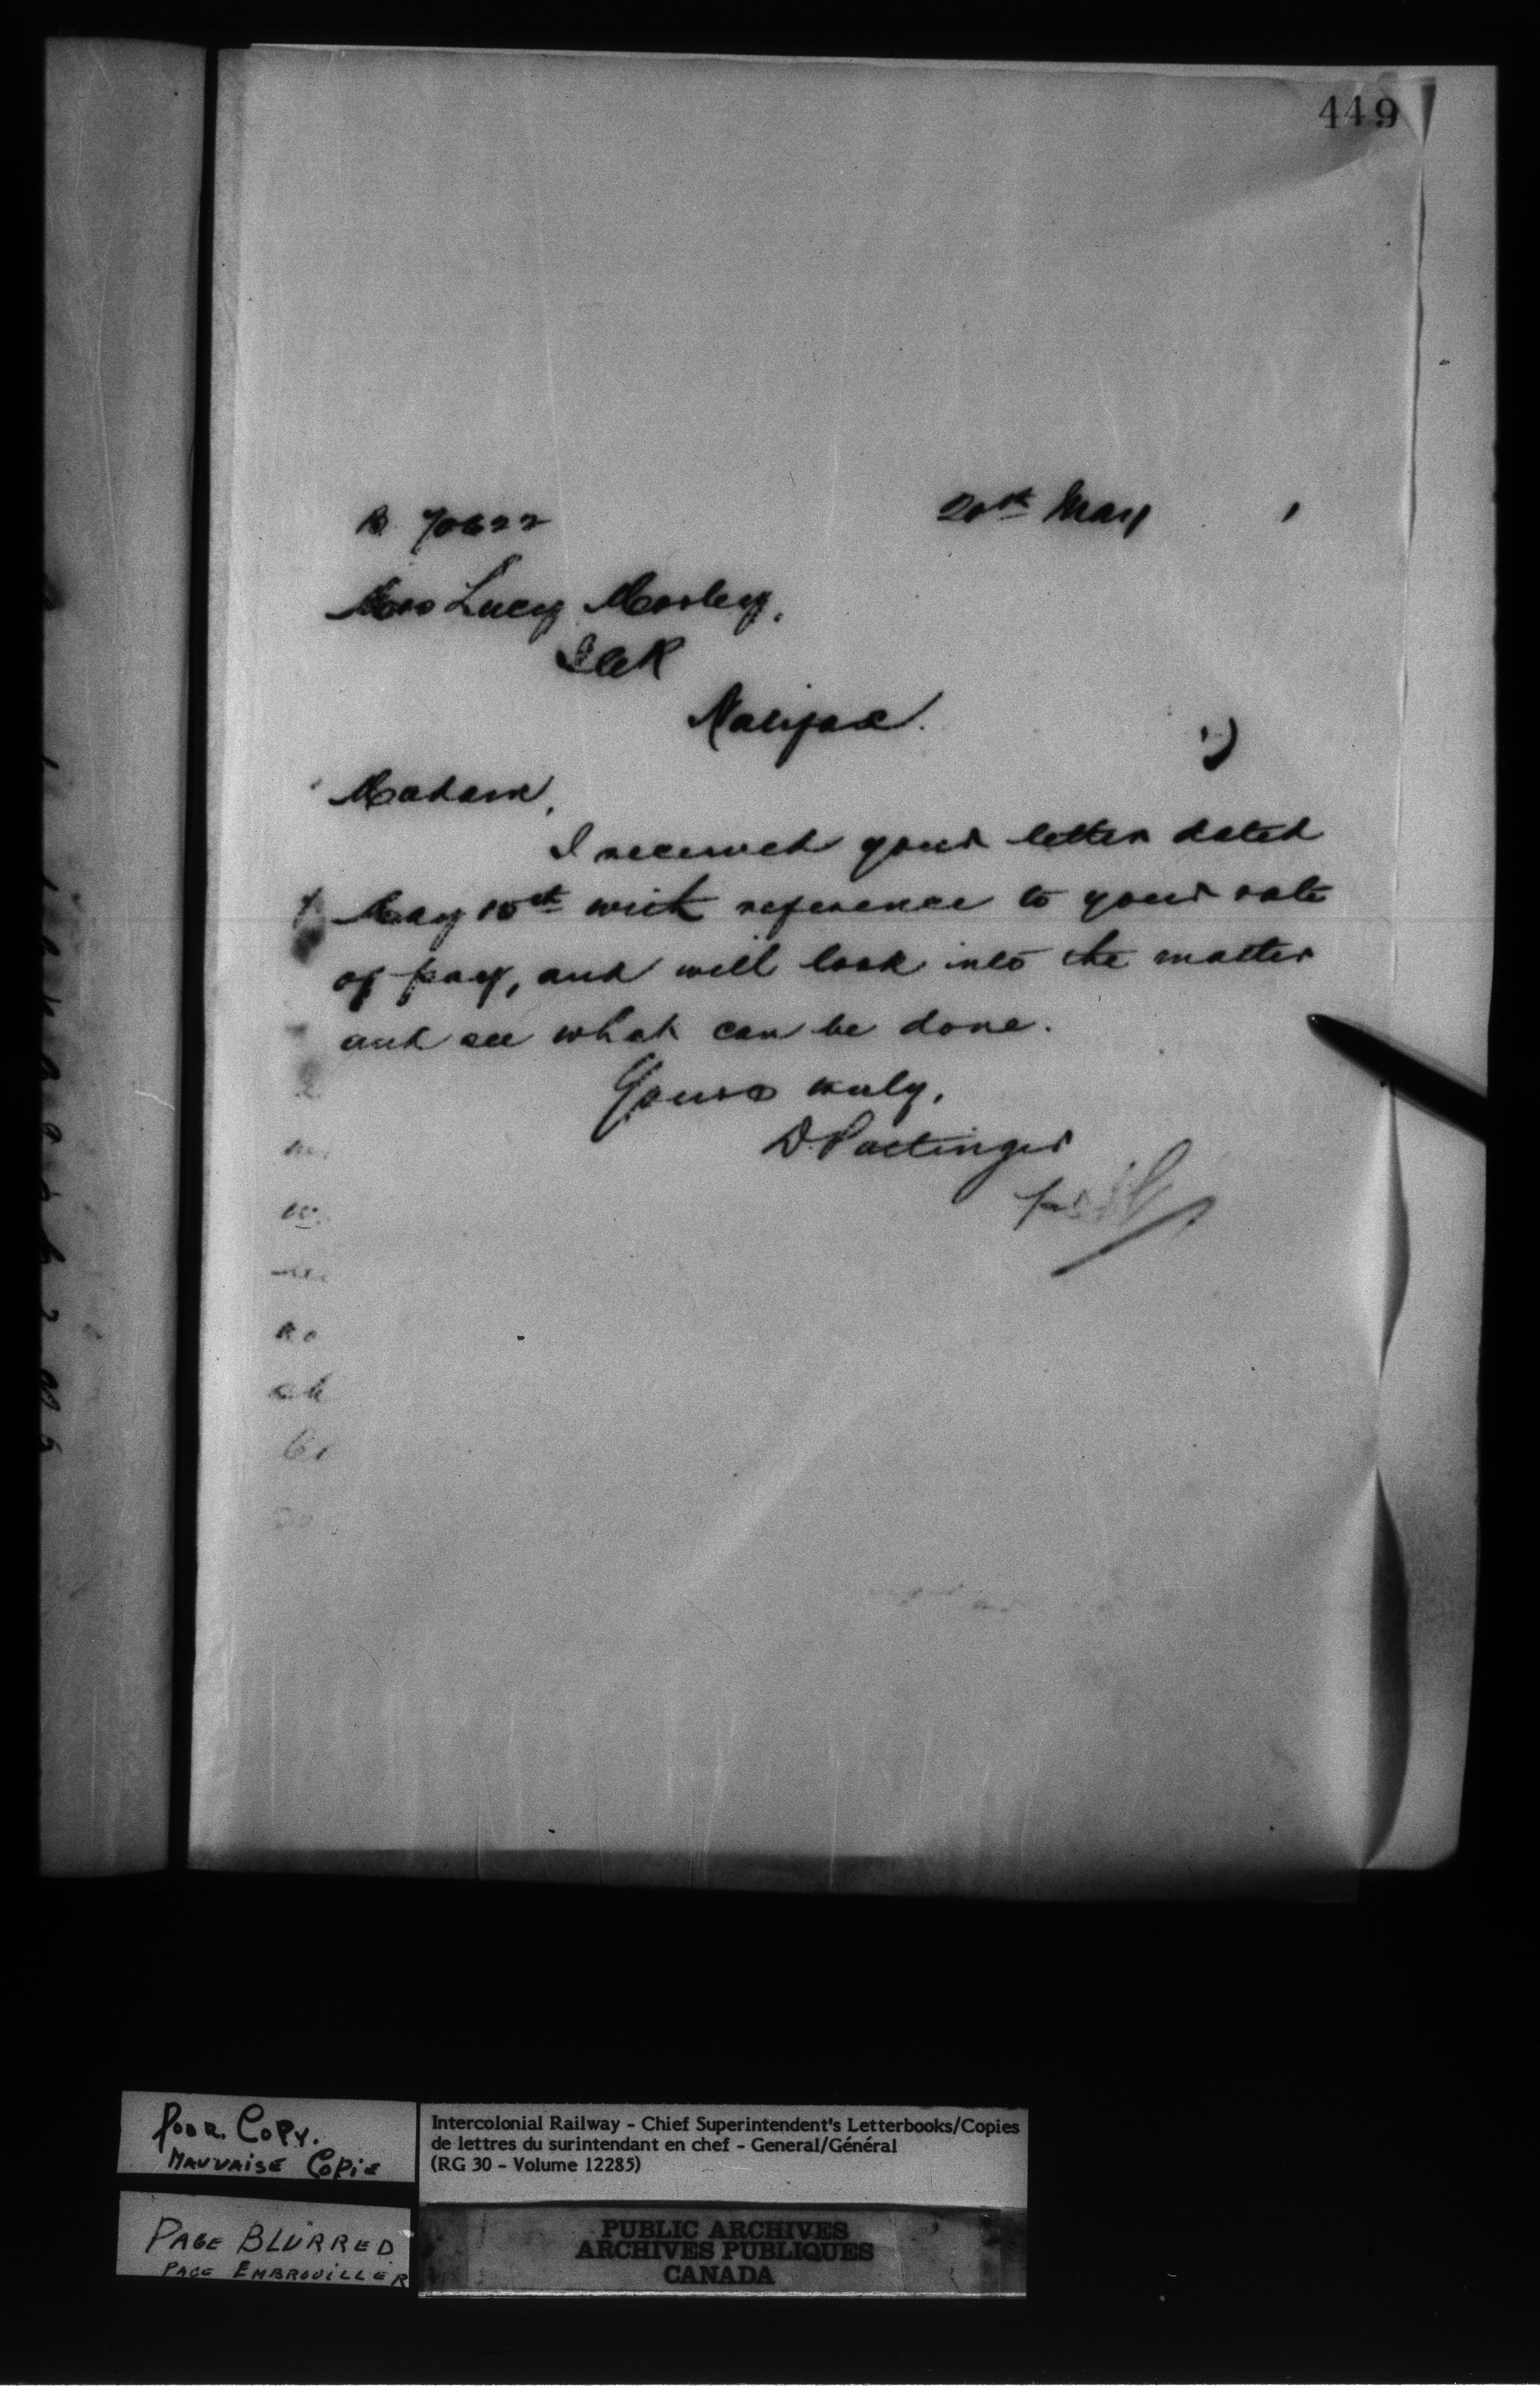 449
B 70622
20th May
Mrs Lucy Mosley,
ICR
Halifax.
Madam,
I received your letter dated
May 15th with reference to your rate
of pay, and will look into the matter
and see what can be done.
Yours truly,
D. Pottinger
Poor Copy.
Mauvaise Copie
Intercolonial Railway - Chief Superintendent's Letterbooks/Copies
de lettres du surintendant en chef - General/Général
(RG 30 - Volume 12285)
Page Blurred
Page Embrouiller
PUBLIC ARCHIVES
ARCHIVES PUBLIQUES
CANADA